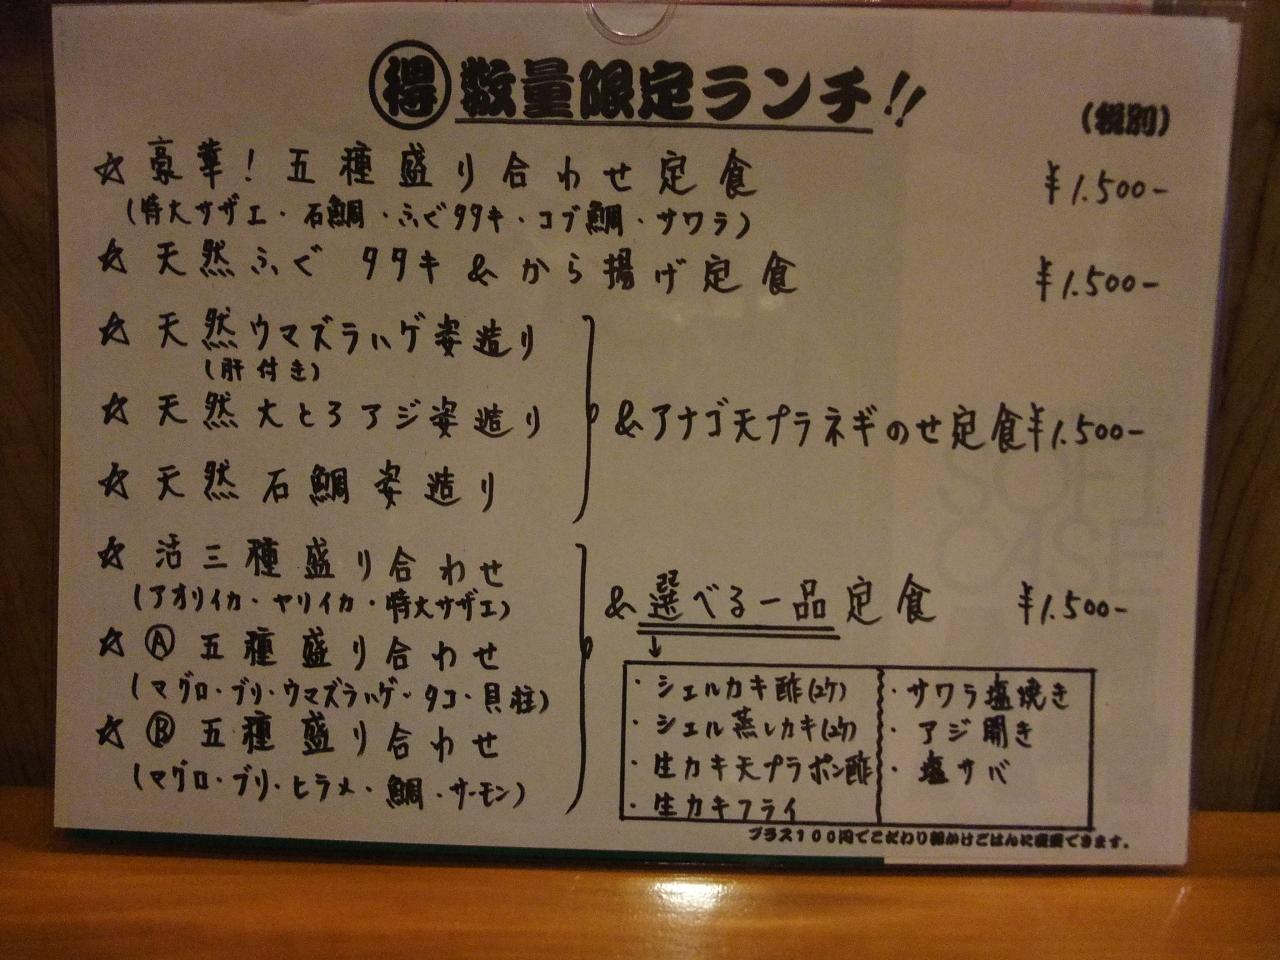 得 数量限定ランチ!!
(税別)
☆ 豪華! 五種盛り合わせ定食 ¥1.500-
(特大サザエ・石鯛・ふぐタタキ・コブ鯛・サワラ)
☆ 天然ふぐ タタキ & から揚げ定食 ¥1.500-
☆ 天然ウマズラハゲ姿造り
(肝付き)
☆ 天然大とろアジ姿造り
& アナゴ天プラネギのせ定食 ¥1.500-
☆ 天然 石鯛 姿造り
☆ 活三種盛り合わせ
(アオリイカ・ヤリイカ・特大サザエ)
& 選べる一品定食 ¥1.500-
☆ Ⓐ 五種盛り合わせ
(マグロ・ブリ・ウマズラハゲ・タコ・貝柱)
☆ Ⓑ 五種盛り合わせ
(マグロ・ブリ・ヒラメ・鯛・サーモン)
↓
・シェルカキ酢(2ケ)
・シェル蒸しカキ(2ケ)
・生カキ天プラポン酢
・生カキフライ
・サワラ塩焼き
・アジ開き
・塩サバ
プラス100円でこだわり卵かけごはんに変更できます。
SOFT
CASE